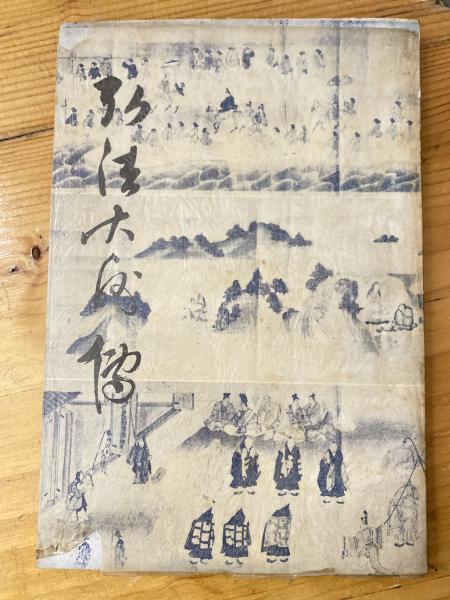 弘法大師傳